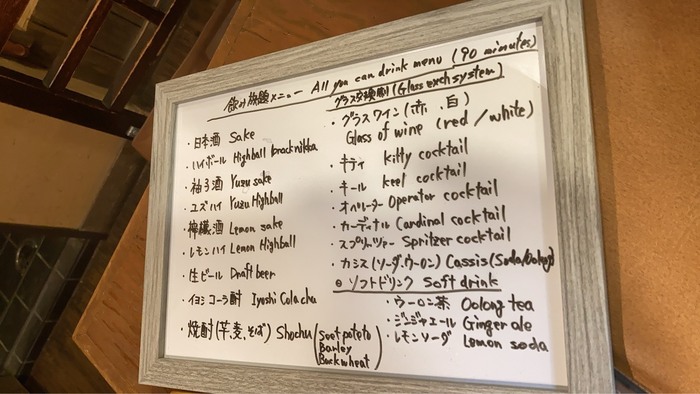 飲み放題メニュー All you can drink menu (90 minutes)
グラス交換制 (Glass exch system)
・日本酒 Sake
・ハイボール Highball bracknikka
・柚子酒 Yuzu sake
・ユズハイ Yuzu Highball
・檸檬酒 Lemon sake
・レモンハイ Lemon Highball
・生ビール Draft beer
・イヨシコーラ酎 Iyoshi Cola chu
・焼酎(芋、麦、そば) Shochu (Sweet potato
Barley
Buckwheat)
・グラスワイン(赤、白)
Glass of wine (red / white)
・キティ Kitty cocktail
・キール keel cocktail
・オペレーター Operator cocktail
・カーディナル Cardinal cocktail
・スプリッツァー Spritzer cocktail
・カシス(ソーダ、ウーロン) Cassis (Soda/Oolong)
◎ソフトドリンク Soft drink
・ウーロン茶 Oolong tea
・ジンジャエール Ginger ale
・レモンソーダ Lemon soda